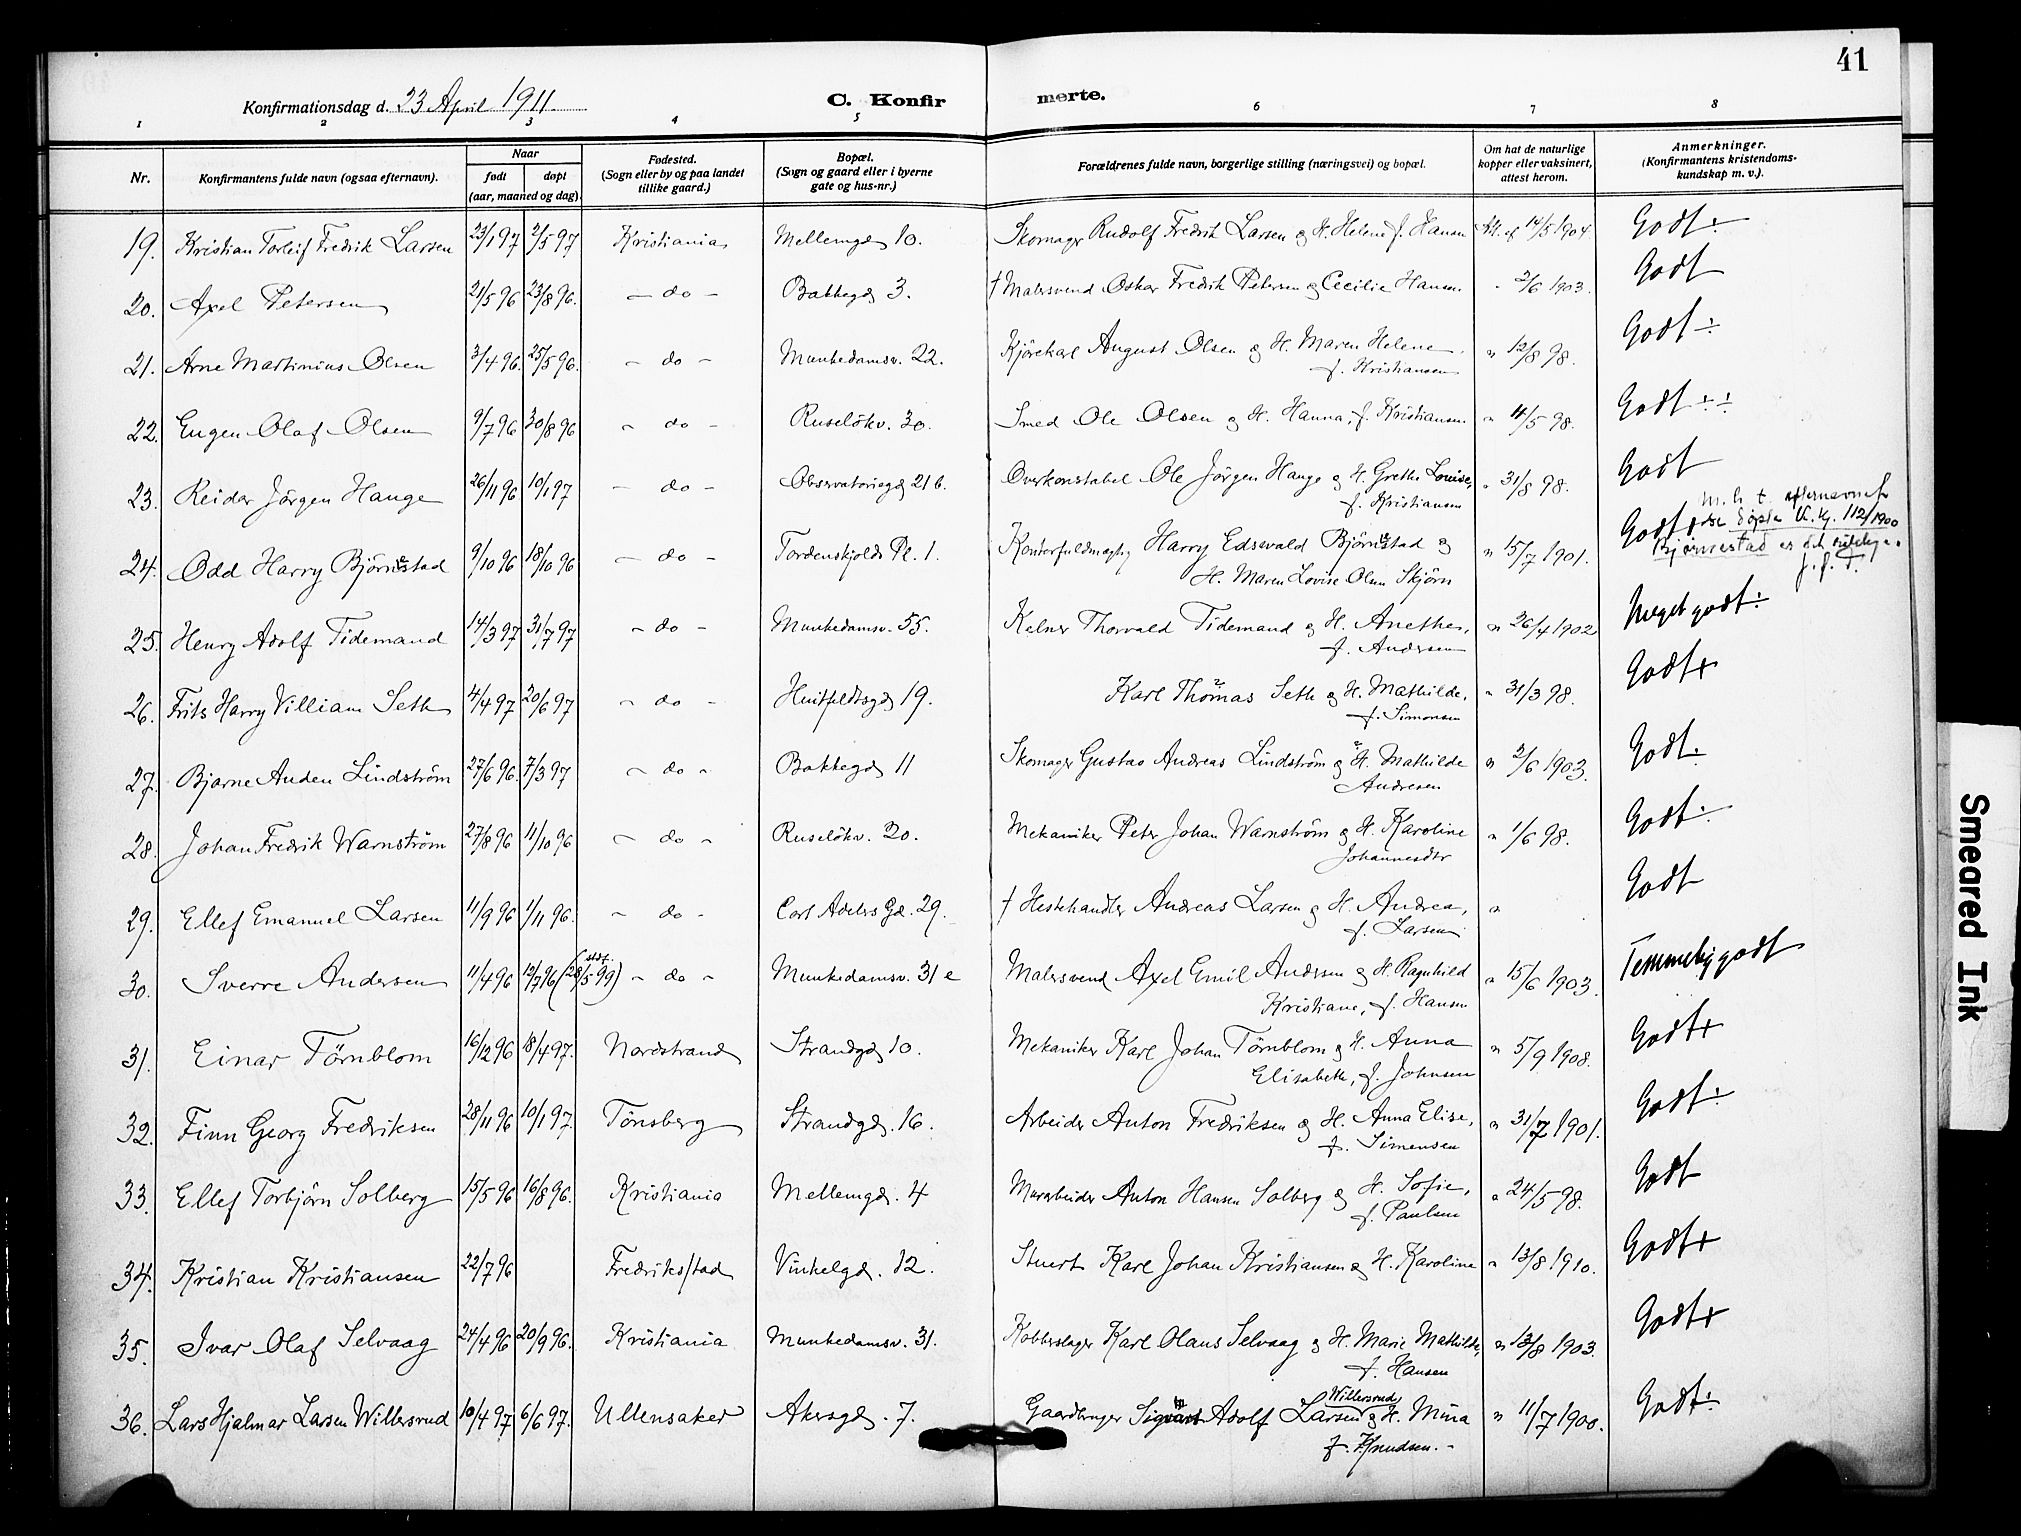 41
Konfirmationsdag d. 23 April 1911. C. Konfirmerte.
1 2 3 4 5 6 7 8
Nr. Konfirmantens fulde navn (ogsaa efternavn). Naar født døpt (aar, maaned og dag). Fødested. (Sogn eller by og paa landet tillike gaard.) Bopæl. (Sogn og gaard eller i byerne gate og hus-nr.) Forældrenes fulde navn, borgerlige stilling (næringsvei) og bopæl. Om hat de naturlige kopper eller vaksinert, attest herom. Anmerkninger. (Konfirmantens kristendoms-kundskap m. v.).
19. Kristian Torleif Fredrik Larsen 23/1 97 2/5 97 Kristiania Mellemgd 10. Skomager Rudolf Fredrik Larsen og H. Helene f. Hansen Att. af 14/5 1904. Godt÷
20. Axel Petersen 21/5 96 23/8 96. - do - Bakkegd 3. † Malersvend Oskar Fredrik Petersen og Cecilie Hansen " 2/6 1903. Godt
21. Arne Martinius Olsen 3/4 96. 25/5 96. - do - Munkedamsv. 22. Kjørekarl August Olsen og H. Maren Helene, " 12/8 98. Godt÷
f. Kristiansen
22. Eugen Olaf Olsen 9/7 96 30/8 96 - do - Ruseløkv. 30. Smed Ole Olsen og H. Hanna, f. Kristiansen " 4/5 98. Godt÷÷
23. Reidar Jørgen Hauge 26/11 96 10/1 97 - do - Observatoriegd 21 b. Overkonstabel Ole Jørgen Hauge og H. Grethe Louise, " 31/8 98. Godt
f. Kristiansen
24. Odd Harry Bjørnestad 9/10 96 18/10 96 - do - Tordenskjolds Pl. 1. Kontorfuldmægtig Harry Edvald Bjørnestad og " 15/7 1901. Godt+
H. Maren Lovise Olsen Skjørn
25. Henry Adolf Tidemand 14/3 97 31/7 97 - do - Munkedamsv. 55. Kelner Thorvald Tidemand og H. Anethe, " 26/4 1902 Meget godt÷
f. Andersen
26. Frits Harry Villiam Seth 4/4 97 20/6 97 - do - Huitfeldtsgd 19. Karl Thomas Seth og H. Mathilde, " 31/3 98. Godt+
f. Simonsen
27. Bjarne Auden Lindstrøm 27/6 96. 7/3 97 - do - Bakkegd 11 Skomager Gustav Andreas Lindstrøm og H. Mathilde " 2/6 1903. Godt÷
Andresen
28. Johan Fredrik Warnstrøm 27/8 96 11/10 96 - do - Ruseløkv. 20. Mekaniker Peter Johan Warnstrøm og H. Karoline " 1/6 98. Godt÷
Johannesdtr
29. Ellef Emanuel Larsen 11/9 96 1/11 96. - do - Carl Adelers Gd. 29. † Hestehandler Andreas Larsen og H. Andrea, " Godt
f. Larsen
30. Sverre Andersen 11/4 96 12/7 96 (stdf. 28/5 99) - do - Munkedamsv. 31 e Malersvend Axel Emil Andersen og H. Ragnhild " 15/6 1903. Temmelig godt
Kristiane, f. Hansen
31. Einar Törnblom 16/12 96 18/4 97. Nordstrand Strandgd 10. Mekaniker Karl Johan Törnblom og H. Anna " 5/9 1908. Godt+
Elisabeth, f. Johnsen
32. Finn Georg Fredriksen 28/11 96 10/1 97. Tønsberg Strandgd. 16. Arbeider Anton Fredriksen og H. Anna Elise, " 31/7 1901. Godt÷
f. Simensen
33. Ellef Torbjørn Solberg 15/5 96 16/8 96. Kristiania Mellemgd. 4 Murarbeider Anton Hansen Solberg og H. Sofie, " 24/5 98. Godt
f. Paulsen
34. Kristian Kristiansen 22/7 96 Fredrikstad Vinkelgd. 12. Stuert Karl Johan Kristiansen og H. Karoline " 13/8 1910. Godt+
35. Ivar Olaf Selvaag 24/4 96 20/9 96. Kristiania Munkedamsv. 31. Kobberslager Karl Olaus Selvaag og H. Marie Mathilde, " 13/8 1903. Godt+
f. Hansen
36. Lars Hjalmar Larsen Willersrud 10/4 97 6/6 97. Ullensaker Akersgd. 7. Gaardbruger Adolf Larsen Willersrud og H. Mina " 11/7 1900. Godt÷
f. Knudsen.
Smeared Ink